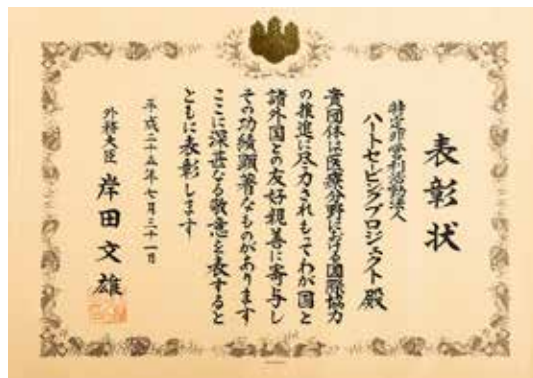 表彰状
特定非営利活動法人
ハートセービングプロジェクト殿
貴団体は医療分野における国際協力
の推進に尽力されもってわが国と
諸外国との友好親善に寄与し
その功績顕著なものがあります
ここに深甚なる敬意を表すると
ともに表彰します
平成二十五年七月三十一日
外務大臣 岸田文雄